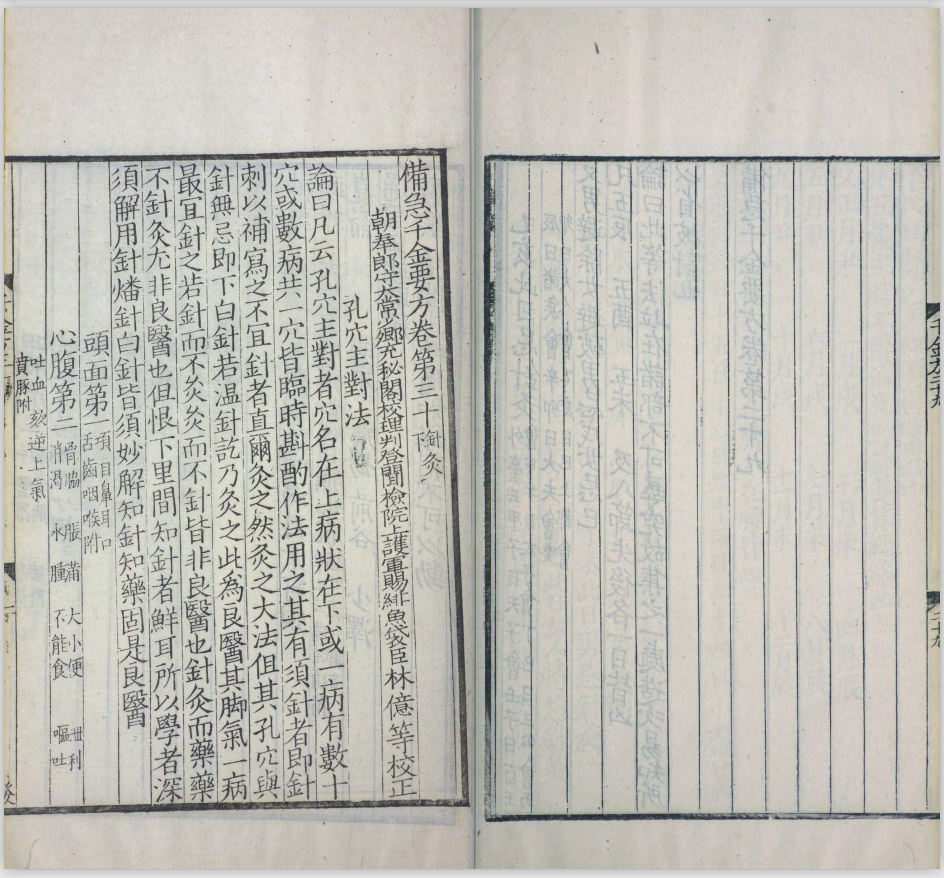 備急千金要方卷第三十 針灸下
朝奉郎守太常少卿充秘閣校理判登聞檢院上護軍賜緋魚袋臣林億等校正
孔穴主對法
論曰凡云孔穴主對者穴名在上病狀在下或一病有數十
穴或數病共一穴皆臨時斟酌作法用之其有須針者即針
刺以補寫之不宜針者直爾灸之然灸之大法但其孔穴與
針無忌即下白針若温針訖乃灸之此為良醫其脚氣一病
最宜針之若針而不灸灸而不針皆非良醫也針灸而藥藥
不針灸尤非良醫也但恨下里間知針者鮮耳所以學者深
須解用針燔針白針皆須妙解知針知藥固是良醫
頭面第一 項目鼻耳口
舌齒咽喉附
心腹第二 胷脇 脹滿 大小便 泄利
消渴 水腫 不能食 嘔吐
吐血 欬逆上氣
賁豚附